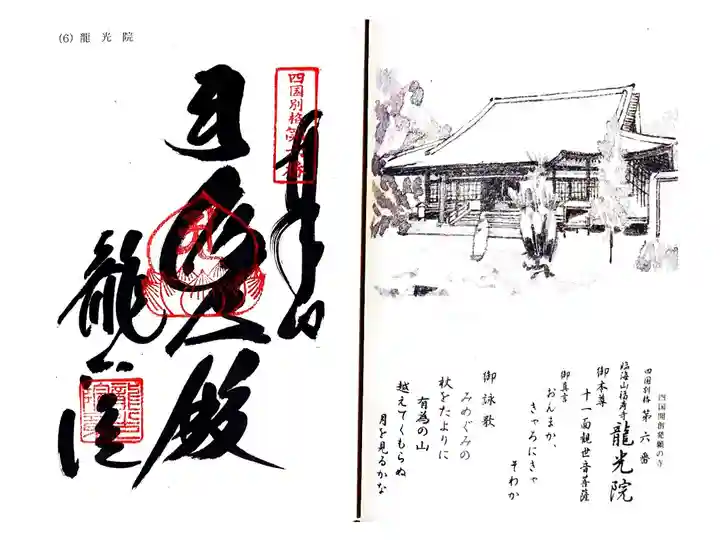 (6) 龍光院
四国別格第六番
奉拝
大悲殿
龍光院
四国開創発願の寺
四国別格 第六番
臨海山福寿寺 龍光院
御本尊
十一面観世音菩薩
御真言
おんまか、
きゃろにきゃ
そわか
御詠歌
みめぐみの
秋をたよりに
有為の山
越えてくもらぬ
月を見るかな